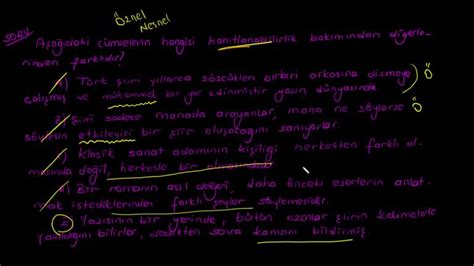 Öznel
Nesnel
SORU
Aşağıdaki cümlelerin hangisi kanıtlanabilirlik bakımından diğerle-
rinden farklıdır?
) Türk şiiri yıllarca sözcükleri birbiri arkasına dizmeye Ö
çalışmış ve mükemmel bir yer edinmiştir yazın dünyasında
) Şiiri sadece manada arayanlar, mana ne söylerse Ö
söylesin etkileyici bir şiir oluşacağını sanıyorlar.
) Klasik sanat adamının kişiliği herkesten farklı ol-
masında değil, herkesle bir olmasındadır
) Bir romanın asıl değeri, daha önceki eserlerin anlat-
mak istediklerinden farklı şeyler söylemesidir.
E Yazısının bir yerinde, bütün ozanlar şiirin kelimelerle
yazıldığını bilirler, dedikten sonra kanısını bildirmiş